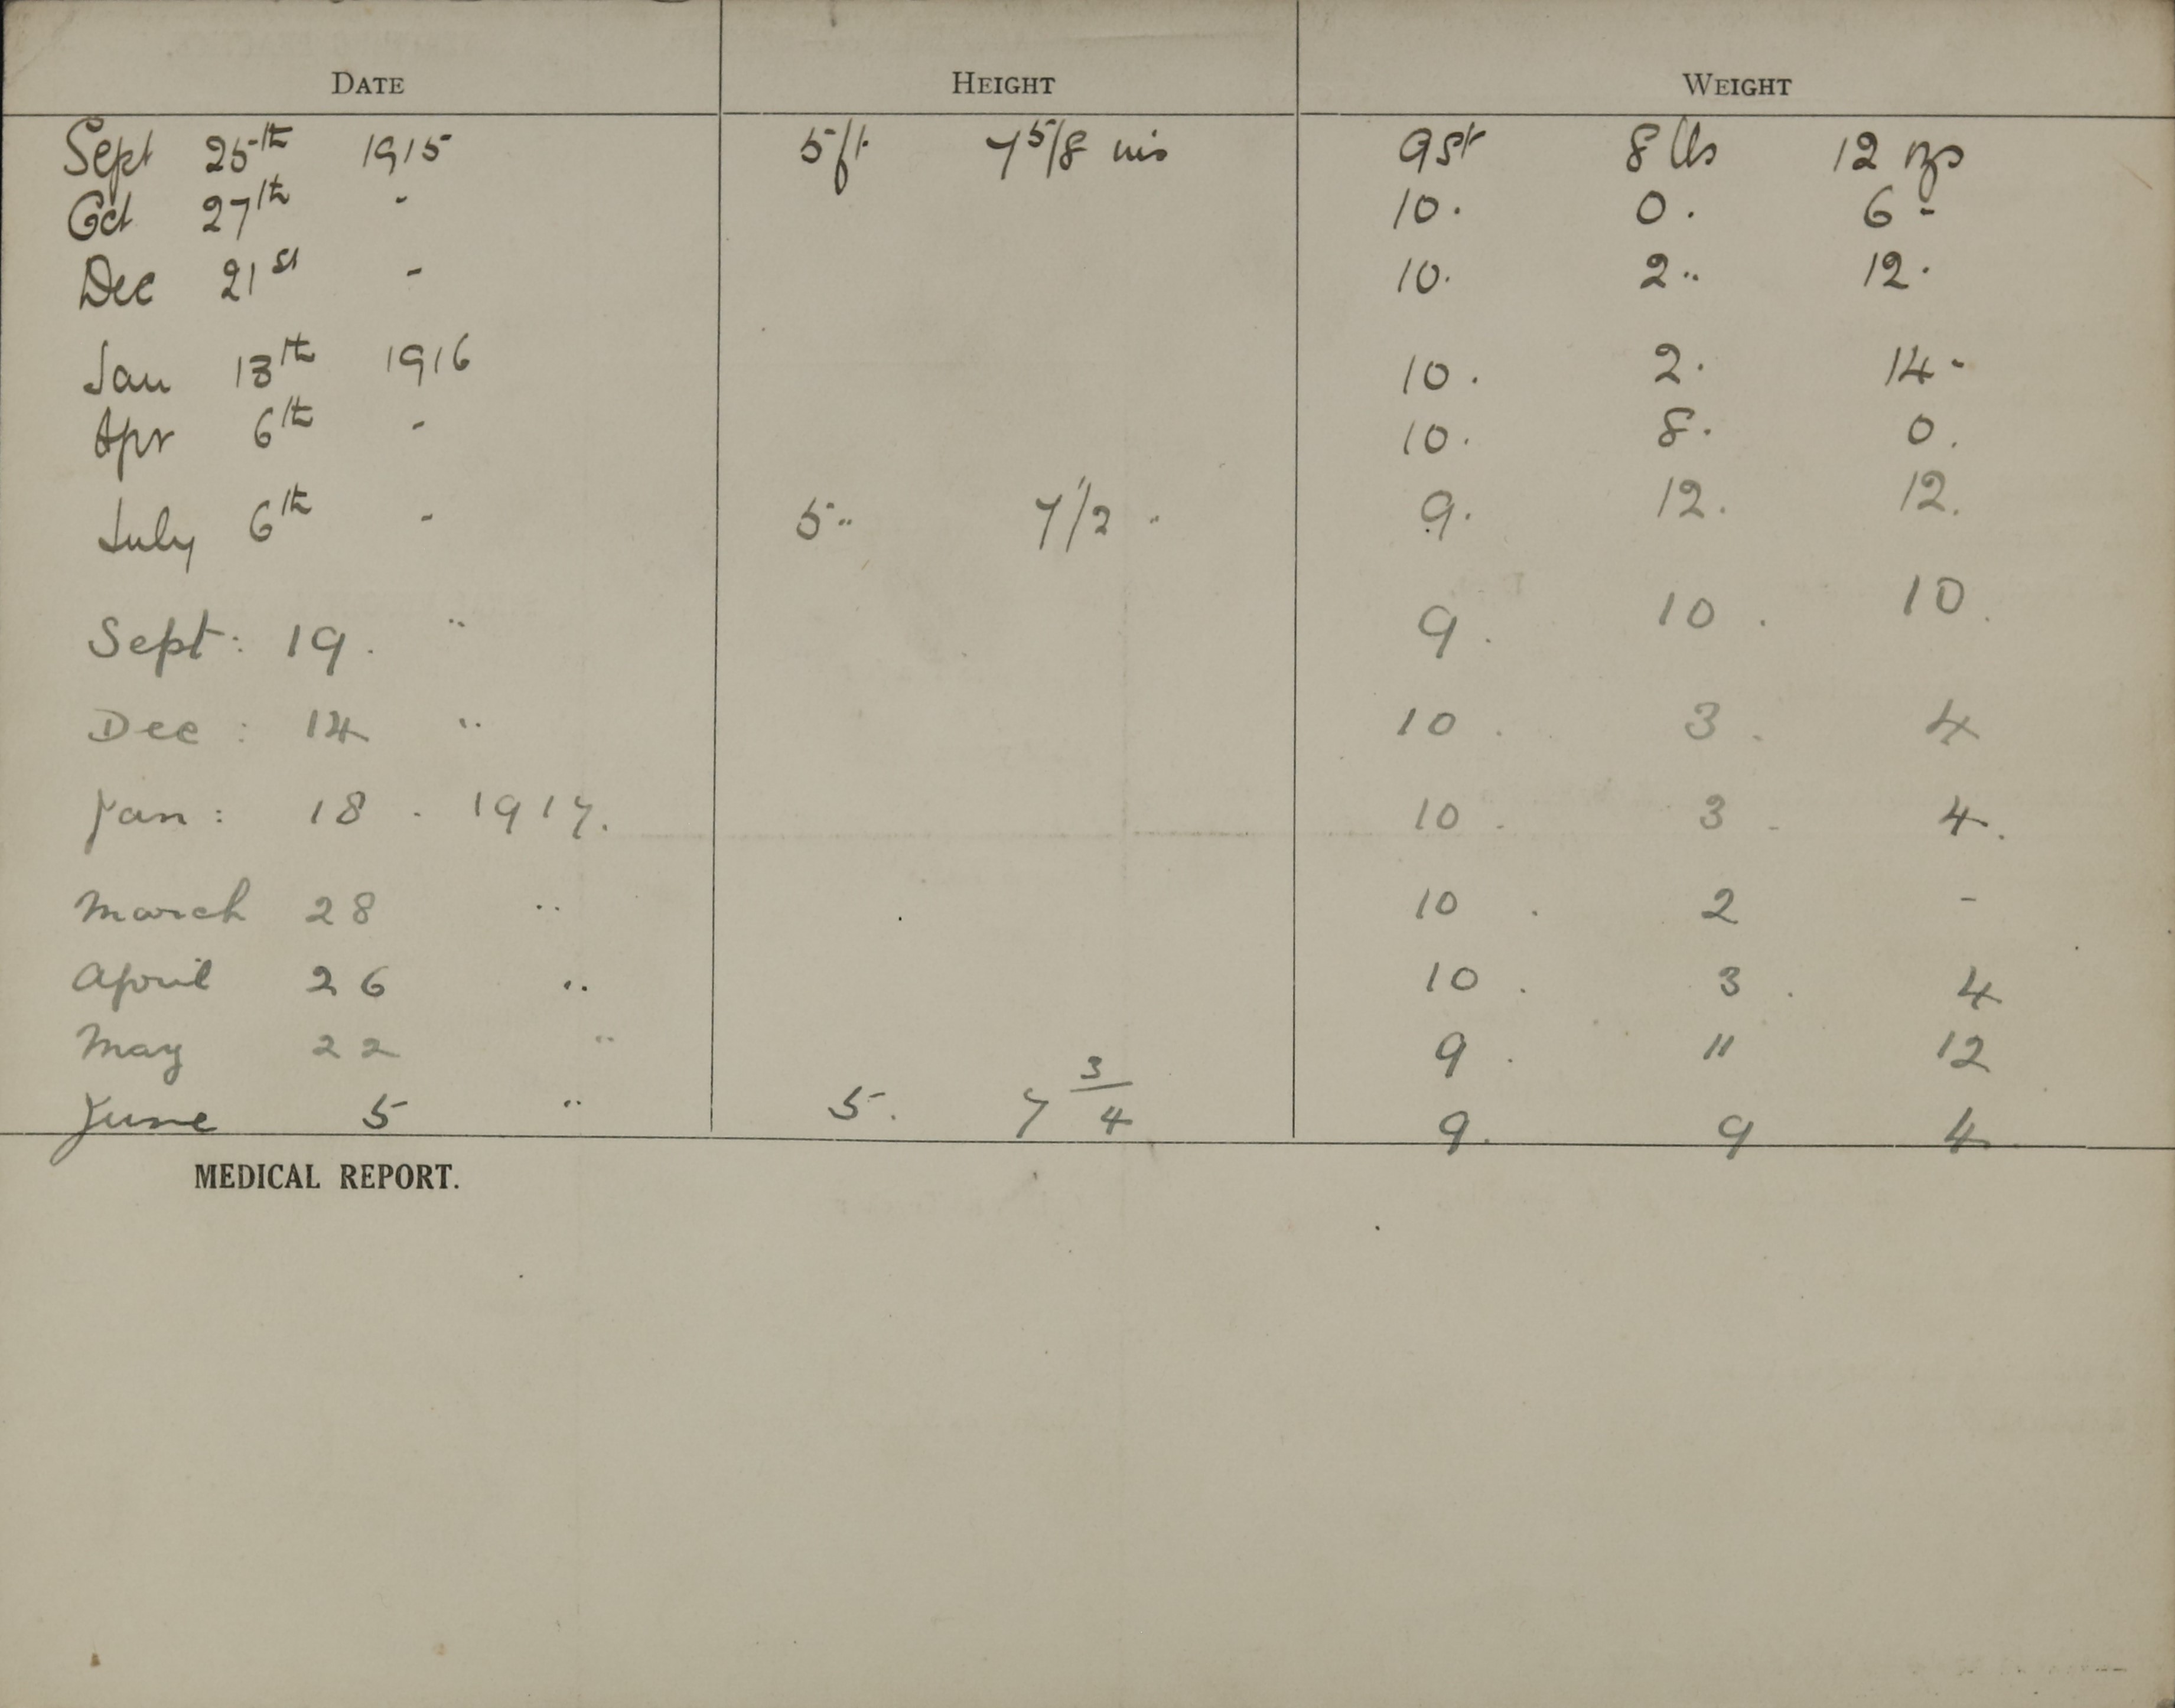 DATE HEIGHT WEIGHT
Sept 25th 1915 5ft 7 5/8 ins 9st 8lbs 12 ozs
Oct 27th - 10. 0. 6 -
Dec 21st - 10. 2.. 12.
Jan 13th 1916 10. 2. 14 -
Apr 6th - 10. 8. 0.
July 6th - 5.. 7 1/2 .. 9. 12. 12.
Sept: 19. .. 9. 10. 10.
Dec: 14 .. 10. 3. 4
Jan: 18. 1917. 10. 3. 4.
March 28 .. 10. 2 -
April 26 .. 10. 3. 4
May 22 .. 9. 11 12
June 5 .. 5. 7 3/4 9. 9 4
MEDICAL REPORT.